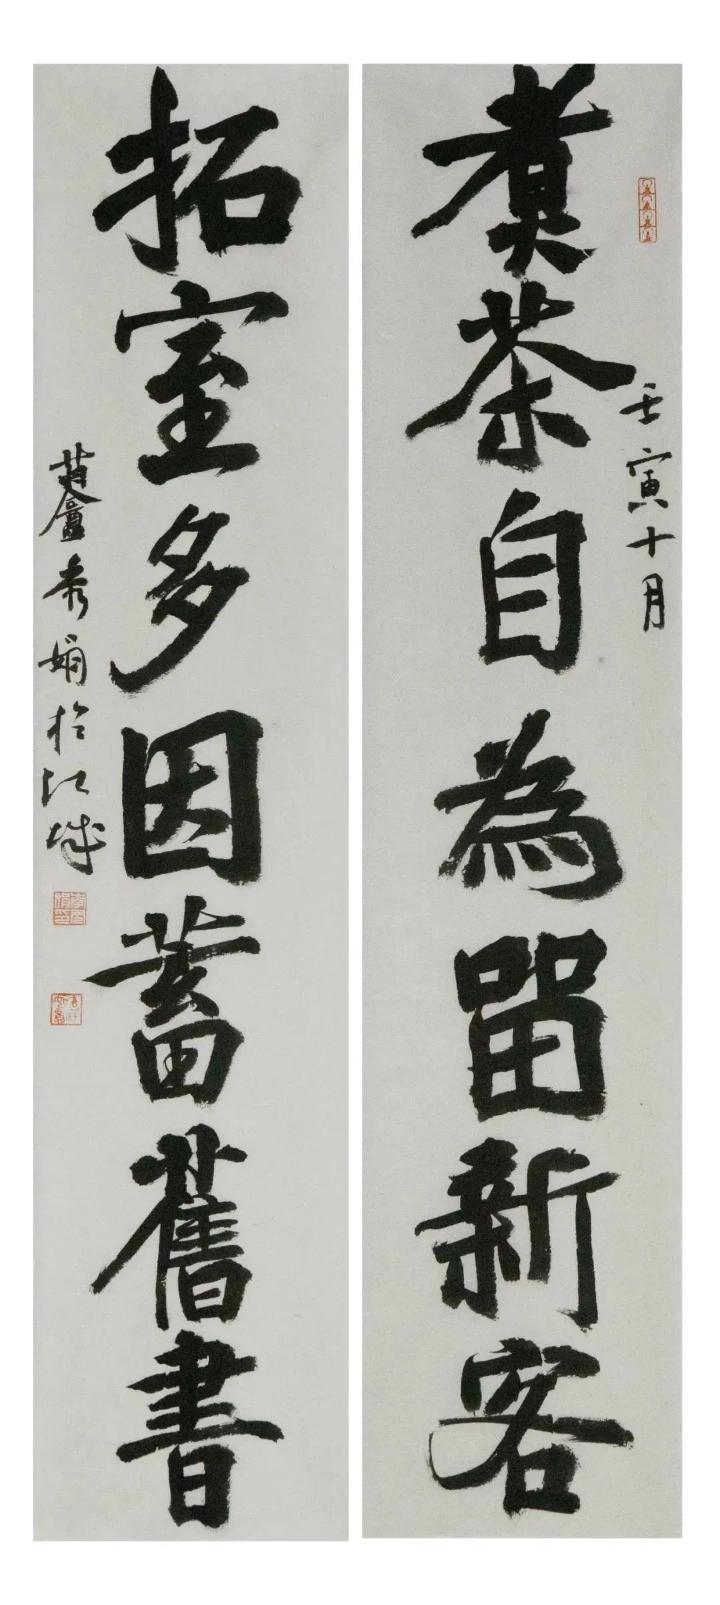 煑茶自為留新客
壬寅十月
拓室多因蓄舊書
秀娟於江城